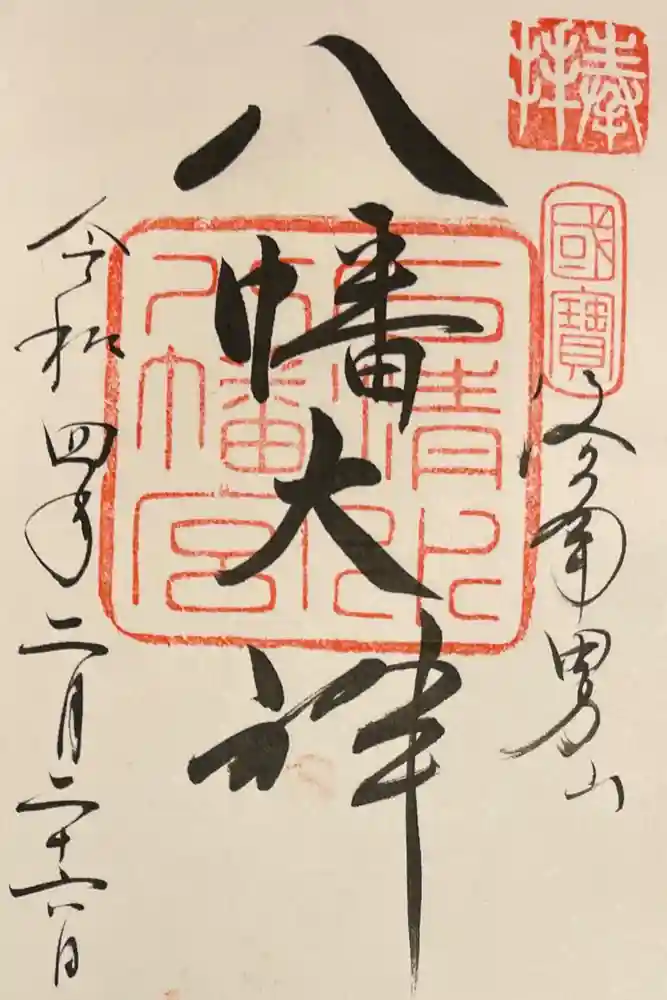 奉拝
國寶
洛南男山
八幡大神
石清水
八幡宮
令和四年二月二十六日